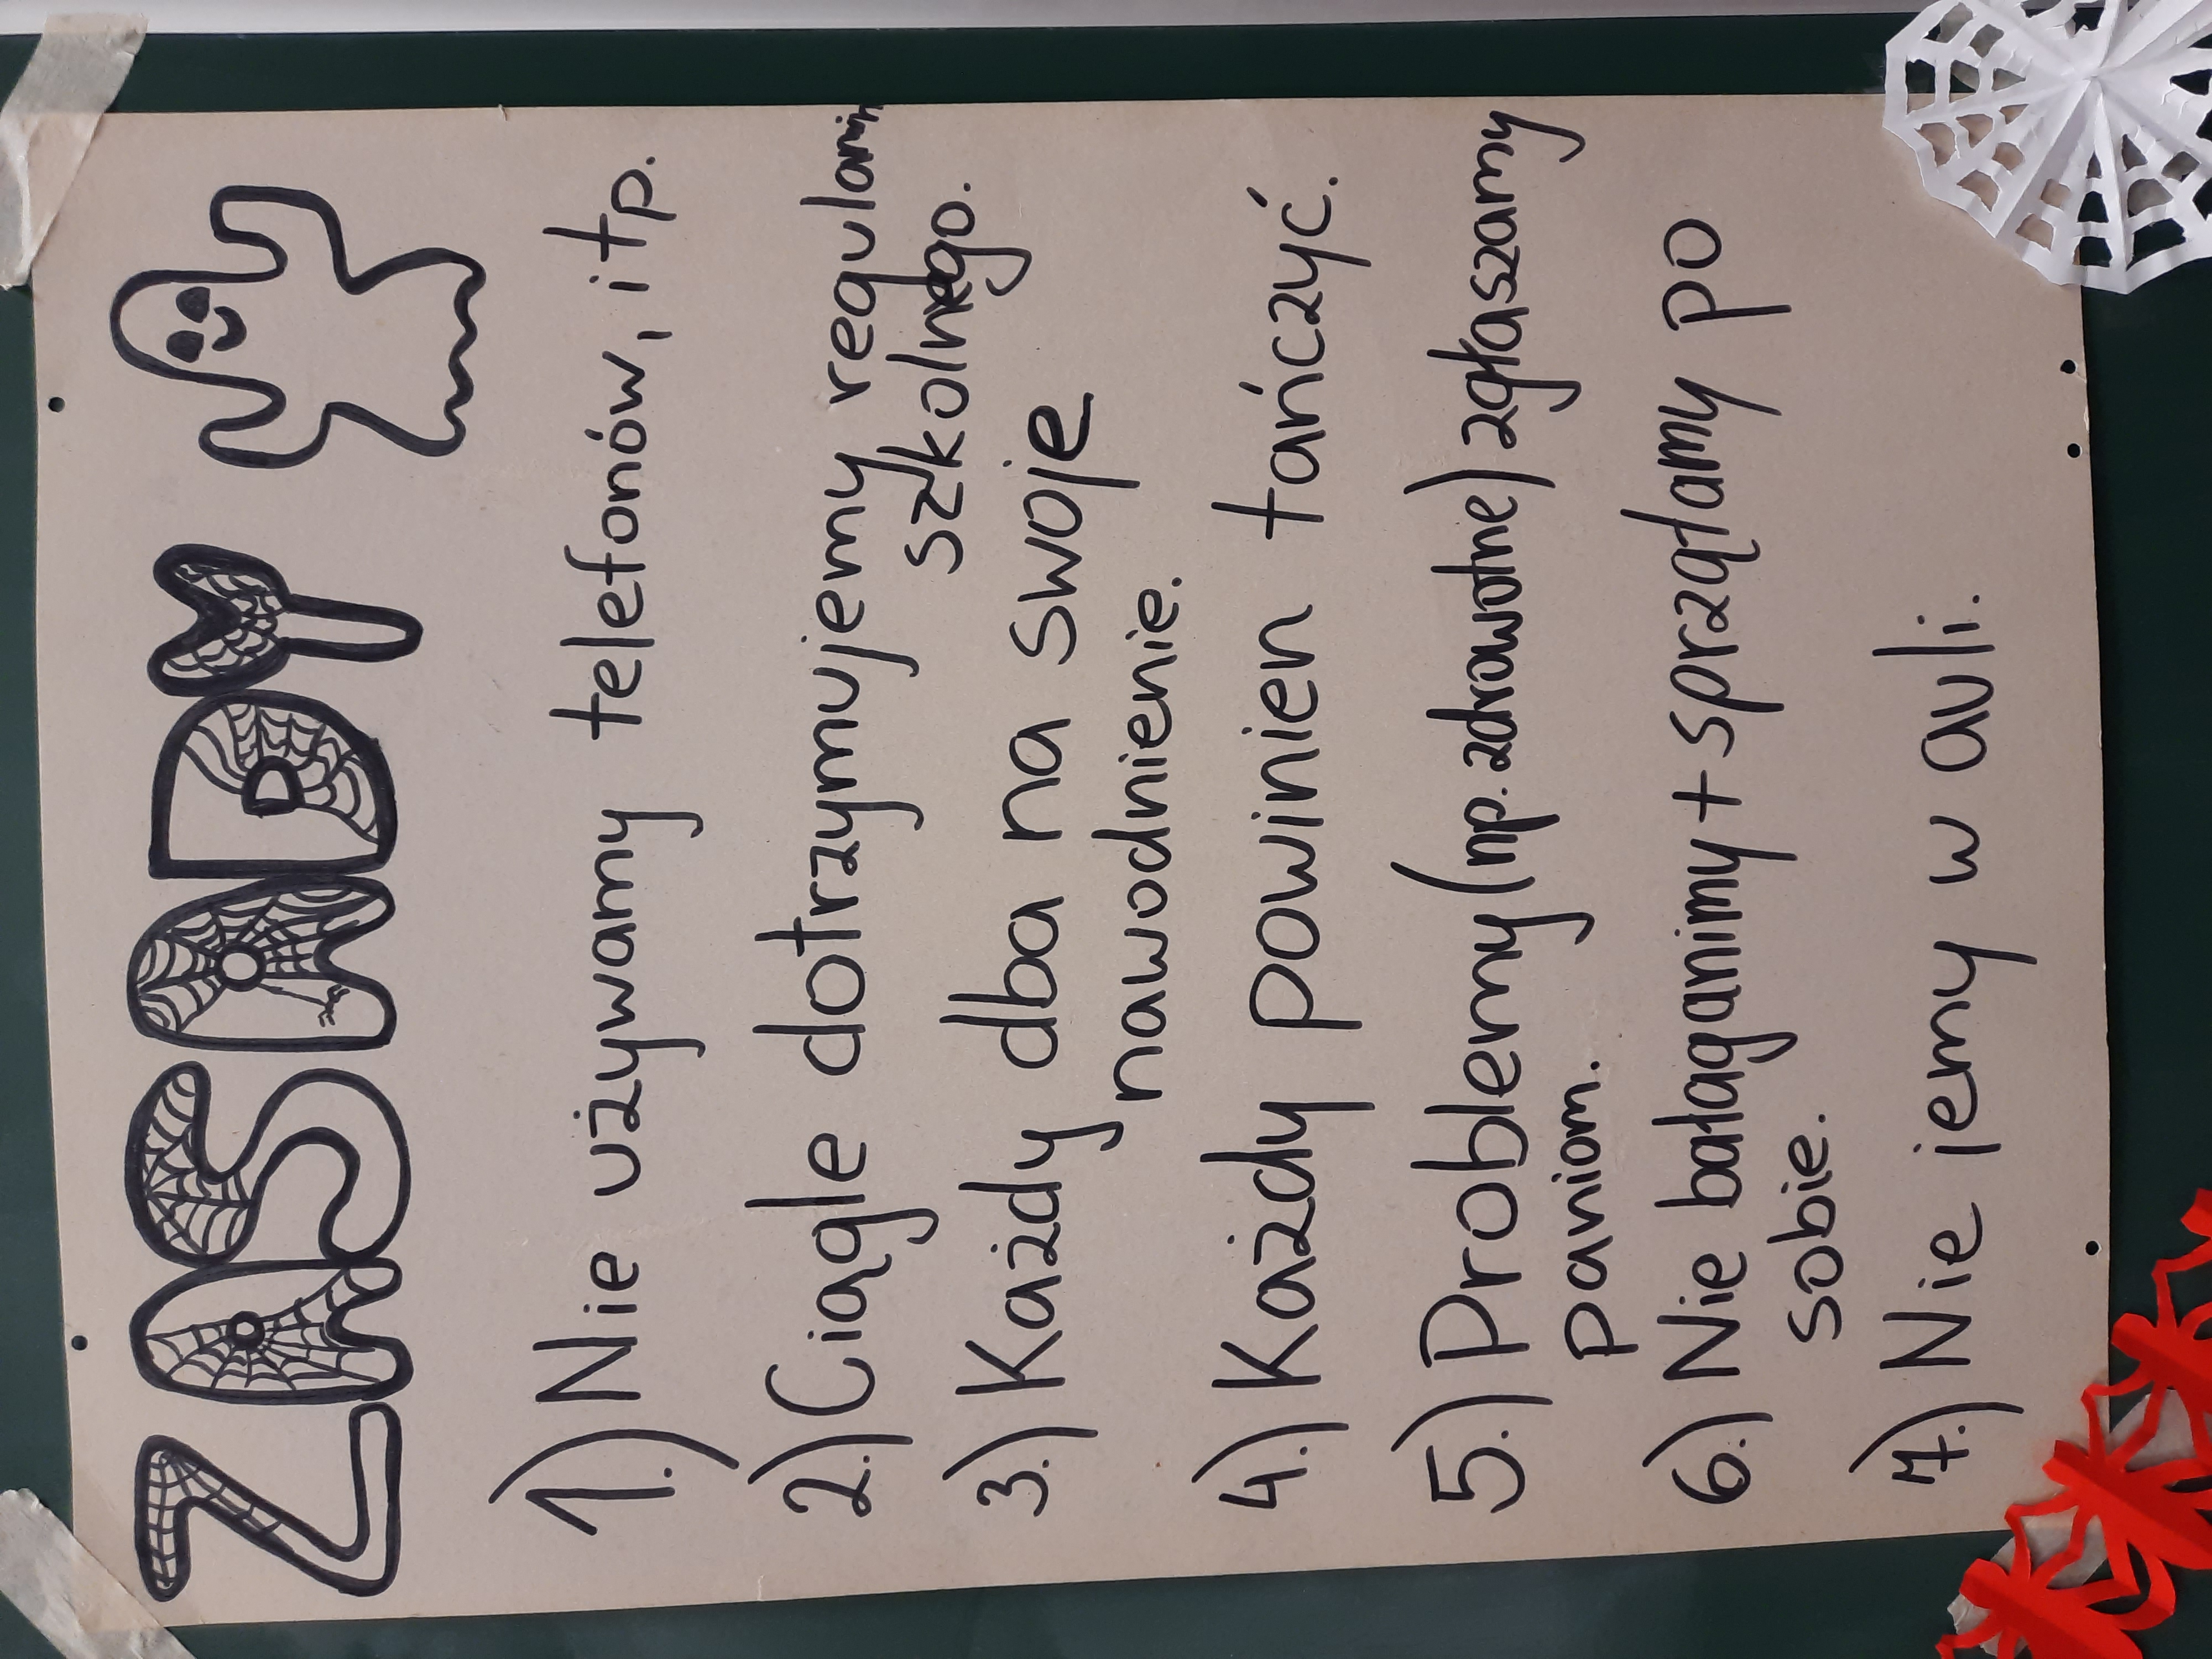 ZASADY
1.) Nie używamy telefonów, itp.
2.) Ciągle dotrzymujemy regulamin
szkolnego.
3.) Każdy dba na swoje
nawodnienie.
4.) Każdy powinien tańczyć.
5.) Problemy (np. zdrowotne) zgłaszamy
paniom.
6.) Nie bałaganimy + sprzątamy po
sobie.
7.) Nie jemy w auli.